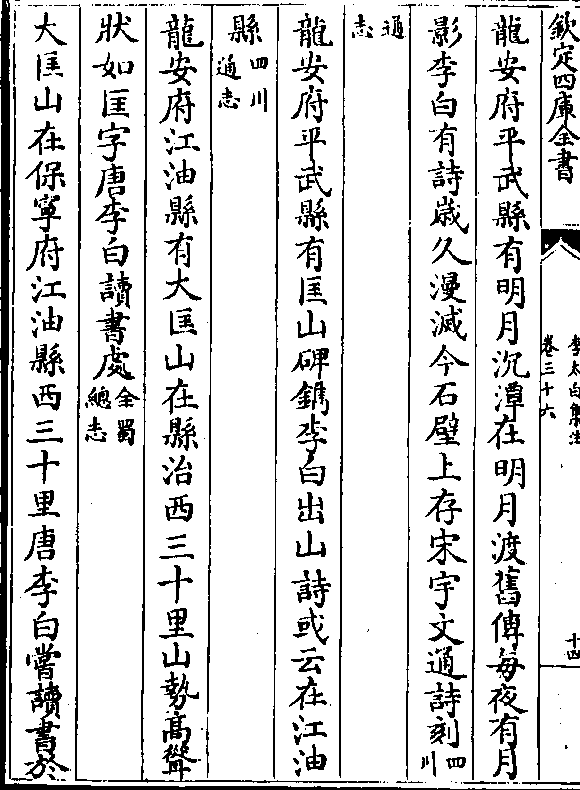 欽定四庫全書
李太白集注
卷三十六
十四
龍安府平武縣有明月沉潭在明月渡舊傳每夜有月
影李白有詩歲久漫滅今石壁上存宋宇文通詩刻四川
通志
龍安府平武縣有匡山碑鐫李白出山詩或云在江油
縣四川通志
龍安府江油縣有大匡山在縣治西三十里山勢高聳
狀如匡字唐李白讀書處全蜀總志
大匡山在保寧府江油縣西三十里唐李白嘗讀書於